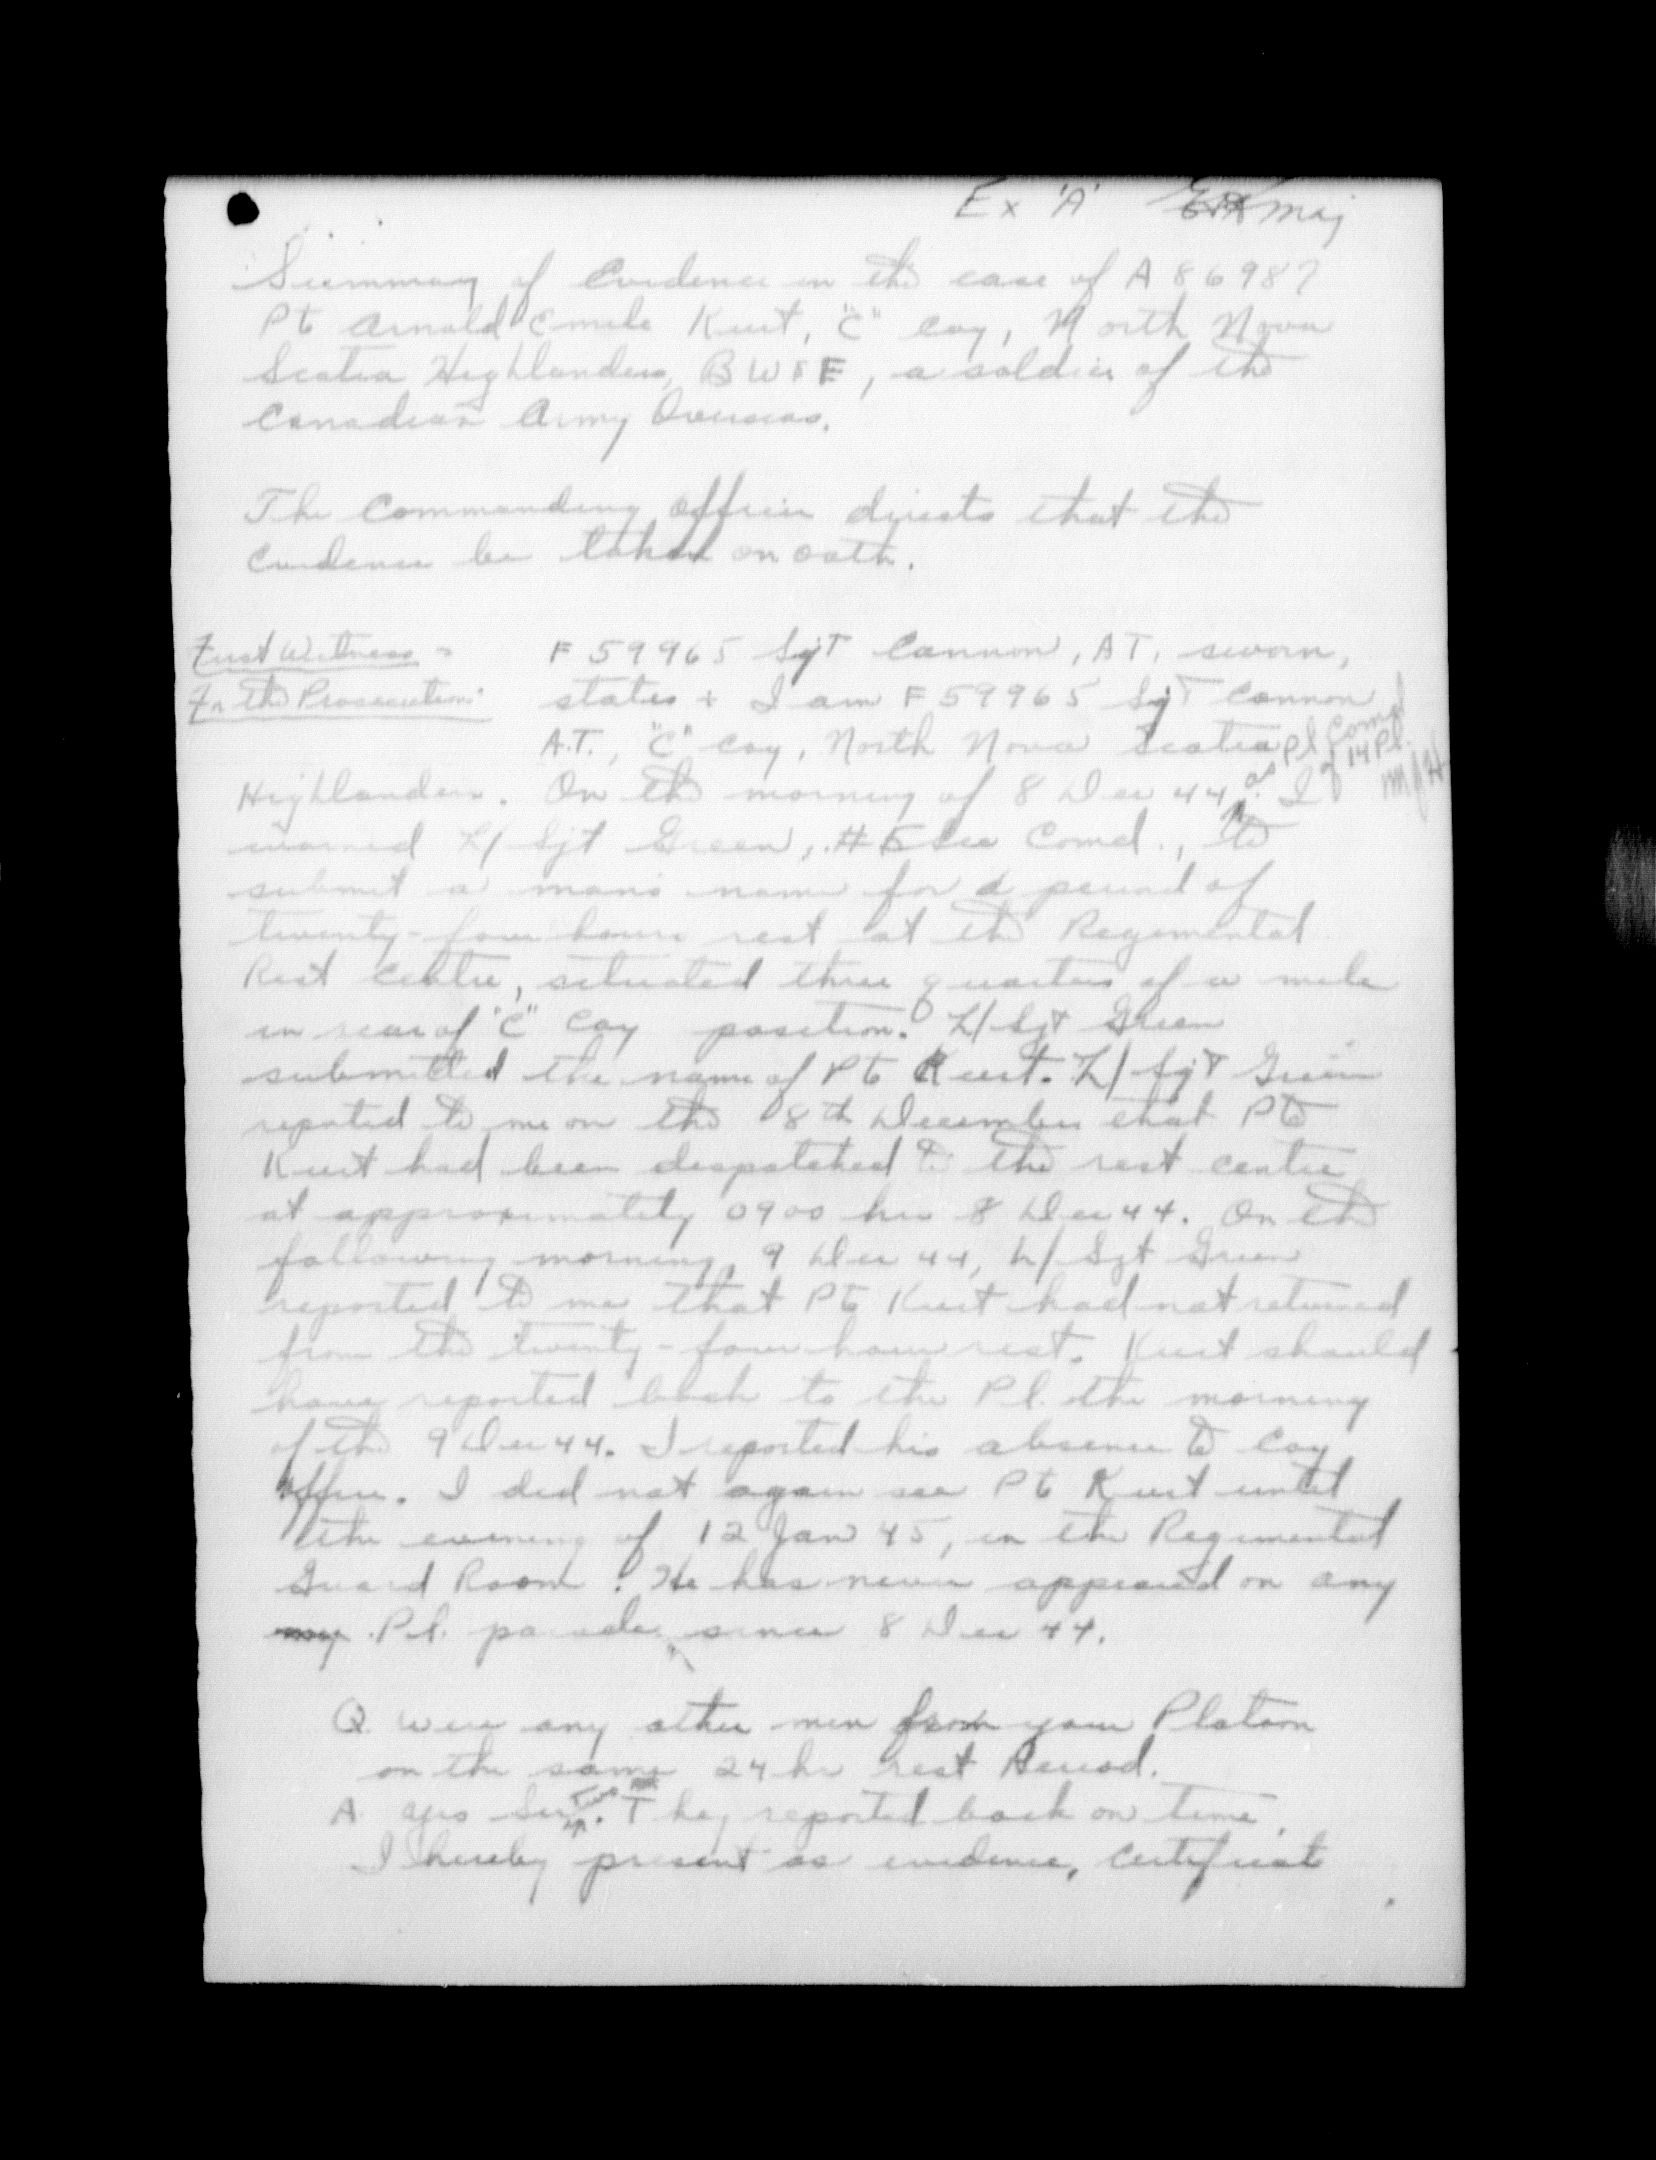 Ex 'A' Maj
Summary of Evidence in the case of A 86987
Pte Arnold Emile Kurt, "C" Coy, North Nova
Scotia Highlanders, BWEF, a soldier of the
Canadian Army Overseas.
The Commanding Officer directs that the
evidence be taken on oath.
First Witness -
For the Prosecution.
F 59965 Sgt Cannon, AT, sworn,
states + I am F 59965 Sgt Cannon
A.T., "C" Coy, North Nova Scotia
as Pl Comd
of 14 Pl.
Highlanders. On the morning of 8 Dec 44, I
warned L/Sgt Green, # 5 Sec Comd., to
submit a man's name for a period of
twenty-four hours rest at the Regimental
Rest Centre, situated three quarters of a mile
in rear of "C" Coy position. L/Sgt Green
submitted the name of Pte Kurt. L/Sgt Green
reported to me on the 8th December that Pte
Kurt had been despatched to the rest centre
at approximately 0900 hrs 8 Dec 44. On the
following morning, 9 Dec 44, L/Sgt Green
reported to me that Pte Kurt had not returned
from the twenty-four hour rest. Kurt should
have reported back to the Pl. the morning
of the 9 Dec 44. I reported his absence to Coy
office. I did not again see Pte Kurt until
the evening of 12 Jan 45, in the Regimental
Guard Room. He has never appeared on any
my Pl. parades since 8 Dec 44.
Q. Were any other men from your Platoon
on the same 24 hr rest Period.
A. Yes Sir, Two. They reported back on time.
I hereby present as evidence, Certificate